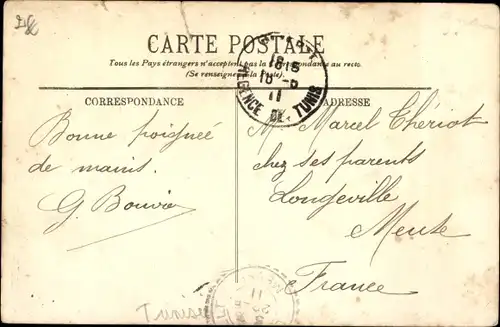 CARTE POSTALE
Tous les Pays étrangers n'acceptent pas la correspondance au recto.
(Se renseigner à la Poste).
18 15
18 -5
11
REGENCE DE TUNIS
CORRESPONDANCE
ADRESSE
Bonne poignée
de mains.
G. Bouvié
M Marcel Thériot
chez ses parents
Longeville
Meuse
France
11
Tunisie